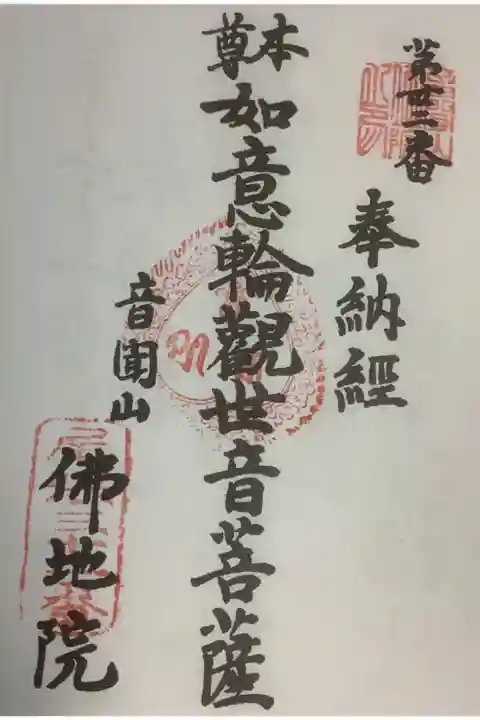 第廿三番
奉納經
本尊
如意輪觀世音菩薩
音圍山
佛地院